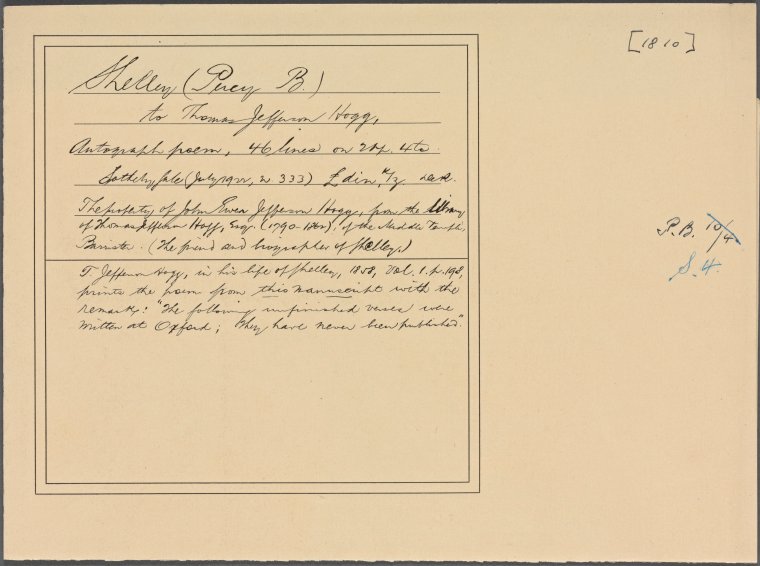 [1810]
Shelley (Percy B.)
to Thomas Jefferson Hogg,
Autograph poem, 46 lines on 2 pp. 4to.
Sotheby Sale (July 1922, no 333)
The property of John Ewen Jefferson Hogg, from the library
of Thomas Jefferson Hogg, Esq. (1792-1862), of the Middle Temple,
Barrister. (The friend and biographer of Shelley.)
T. Jefferson Hogg, in his life of Shelley, 1858, Vol. 1. p. 198,
prints the poem from this manuscript with the
remark: "The following unfinished verses were
written at Oxford; they have never been published."
P.B. 10/4
S.4.